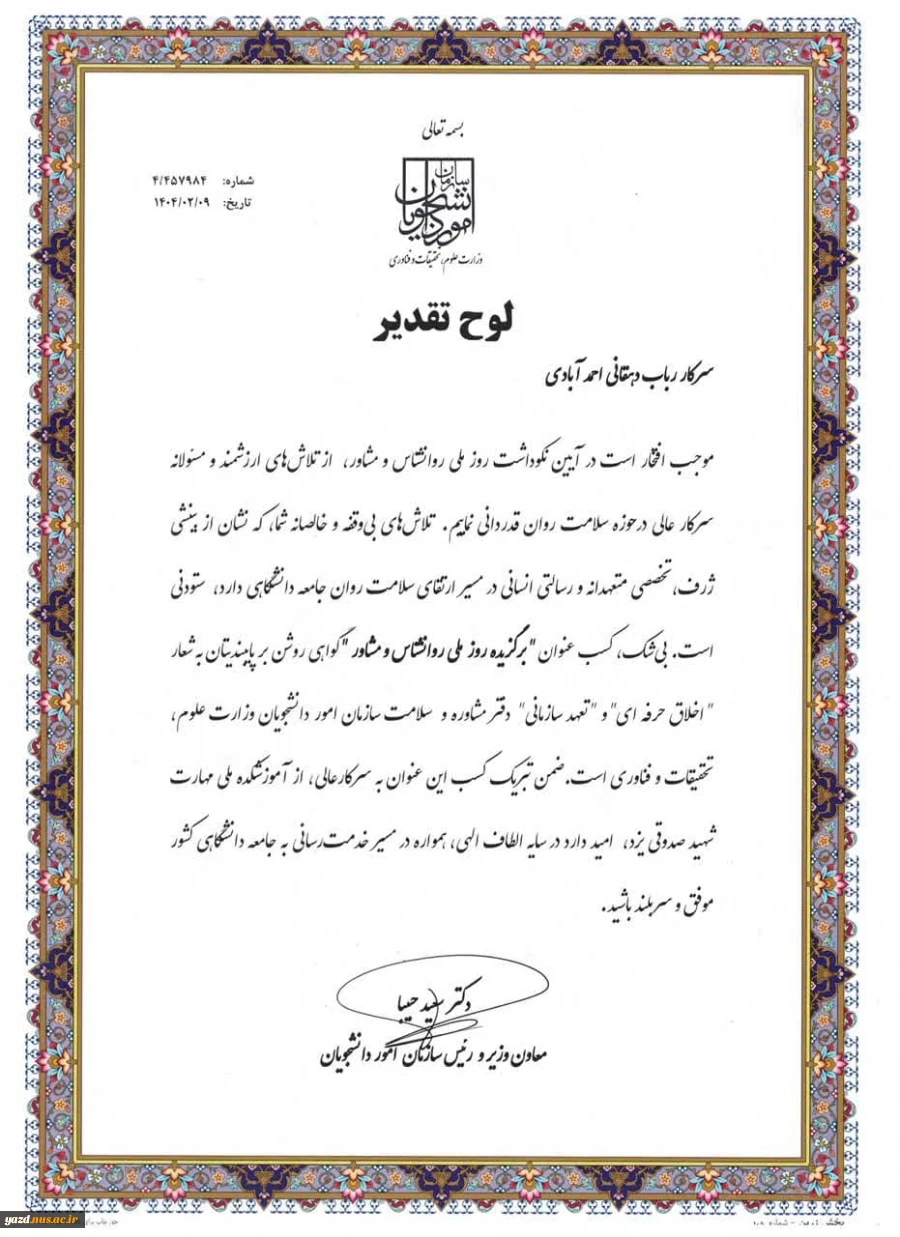 بسمه تعالی
سازمان امور دانشجویان
وزارت علوم، تحقیقات و فناوری
شماره: ۴/۴۵۷۹۸۴
تاریخ: ۱۴۰۴/۰۲/۰۹
لوح تقدیر
سرکار رباب دهقانی احمد آبادی
موجب افتخار است در آیین نکوداشت روز ملی روانشناس و مشاور، از تلاش‌های ارزشمند و مسئولانه
سرکار عالی درحوزه سلامت روان قدردانی نماییم. تلاش‌های بی‌وقفه و خالصانه شما، که نشان از بینشی
ژرف، تخصصی متعهدانه و رسالتی انسانی در مسیر ارتقای سلامت روان جامعه دانشگاهی دارد، ستودنی
است. بی‌شک، کسب عنوان "برگزیده روز ملی روانشناس و مشاور" گواهی روشن بر پایبندیتان به شعار
"اخلاق حرفه ای" و "تعهد سازمانی" دفتر مشاوره و سلامت سازمان امور دانشجویان وزارت علوم،
تحقیقات و فناوری است. ضمن تبریک کسب این عنوان به سرکارعالی، از آموزشکده ملی مهارت
شهید صدوقی یزد، امید دارد در سایه الطاف الهی، همواره در مسیر خدمت‌رسانی به جامعه دانشگاهی کشور
موفق و سربلند باشید.
دکتر سعید حبیبا
معاون وزیر و رئیس سازمان امور دانشجویان
yazd.nus.ac.ir